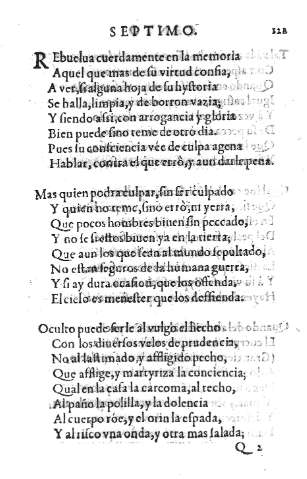 SEPTIMO. 121
REbuelua cuerdamente en la memoria
Aquel que mas de su virtud confia,
A ver, si alguna hoja de su hystoria
Se halla, limpia, y de borron vazia;
Y siendo assi, con arrogancia y gloria
Bien puede sino teme de otro dia.
Pues su consciencia vée de culpa agena
Hablar, contra el que errò, y aun darle pena.
Mas quien podra culpar, sin ser culpado
Y quien no teme, sino errò, ni yerra,
Que pocos hombres biuen sin peccado,
Y no se si estos biuen ya en la tierra;
Que aun los que seàn al mundo sepultado,
No estan seguros de la humana guerra,
Y si ay dura ocasion, que los ofenda,
El cielo es menester que los deffienda.
Oculto puede serle al vulgo el hecho
Con los diuersos velos de prudencia,
No al lastimado, y affligido pecho,
Que afflige, y martyriza la conciencia;
Qual en la casa la carcoma, al techo,
Al paño la polilla, y la dolencia
Al cuerpo róe, y el orin la espada,
Y al risco vna onda, y otra mas salada;
Q 2